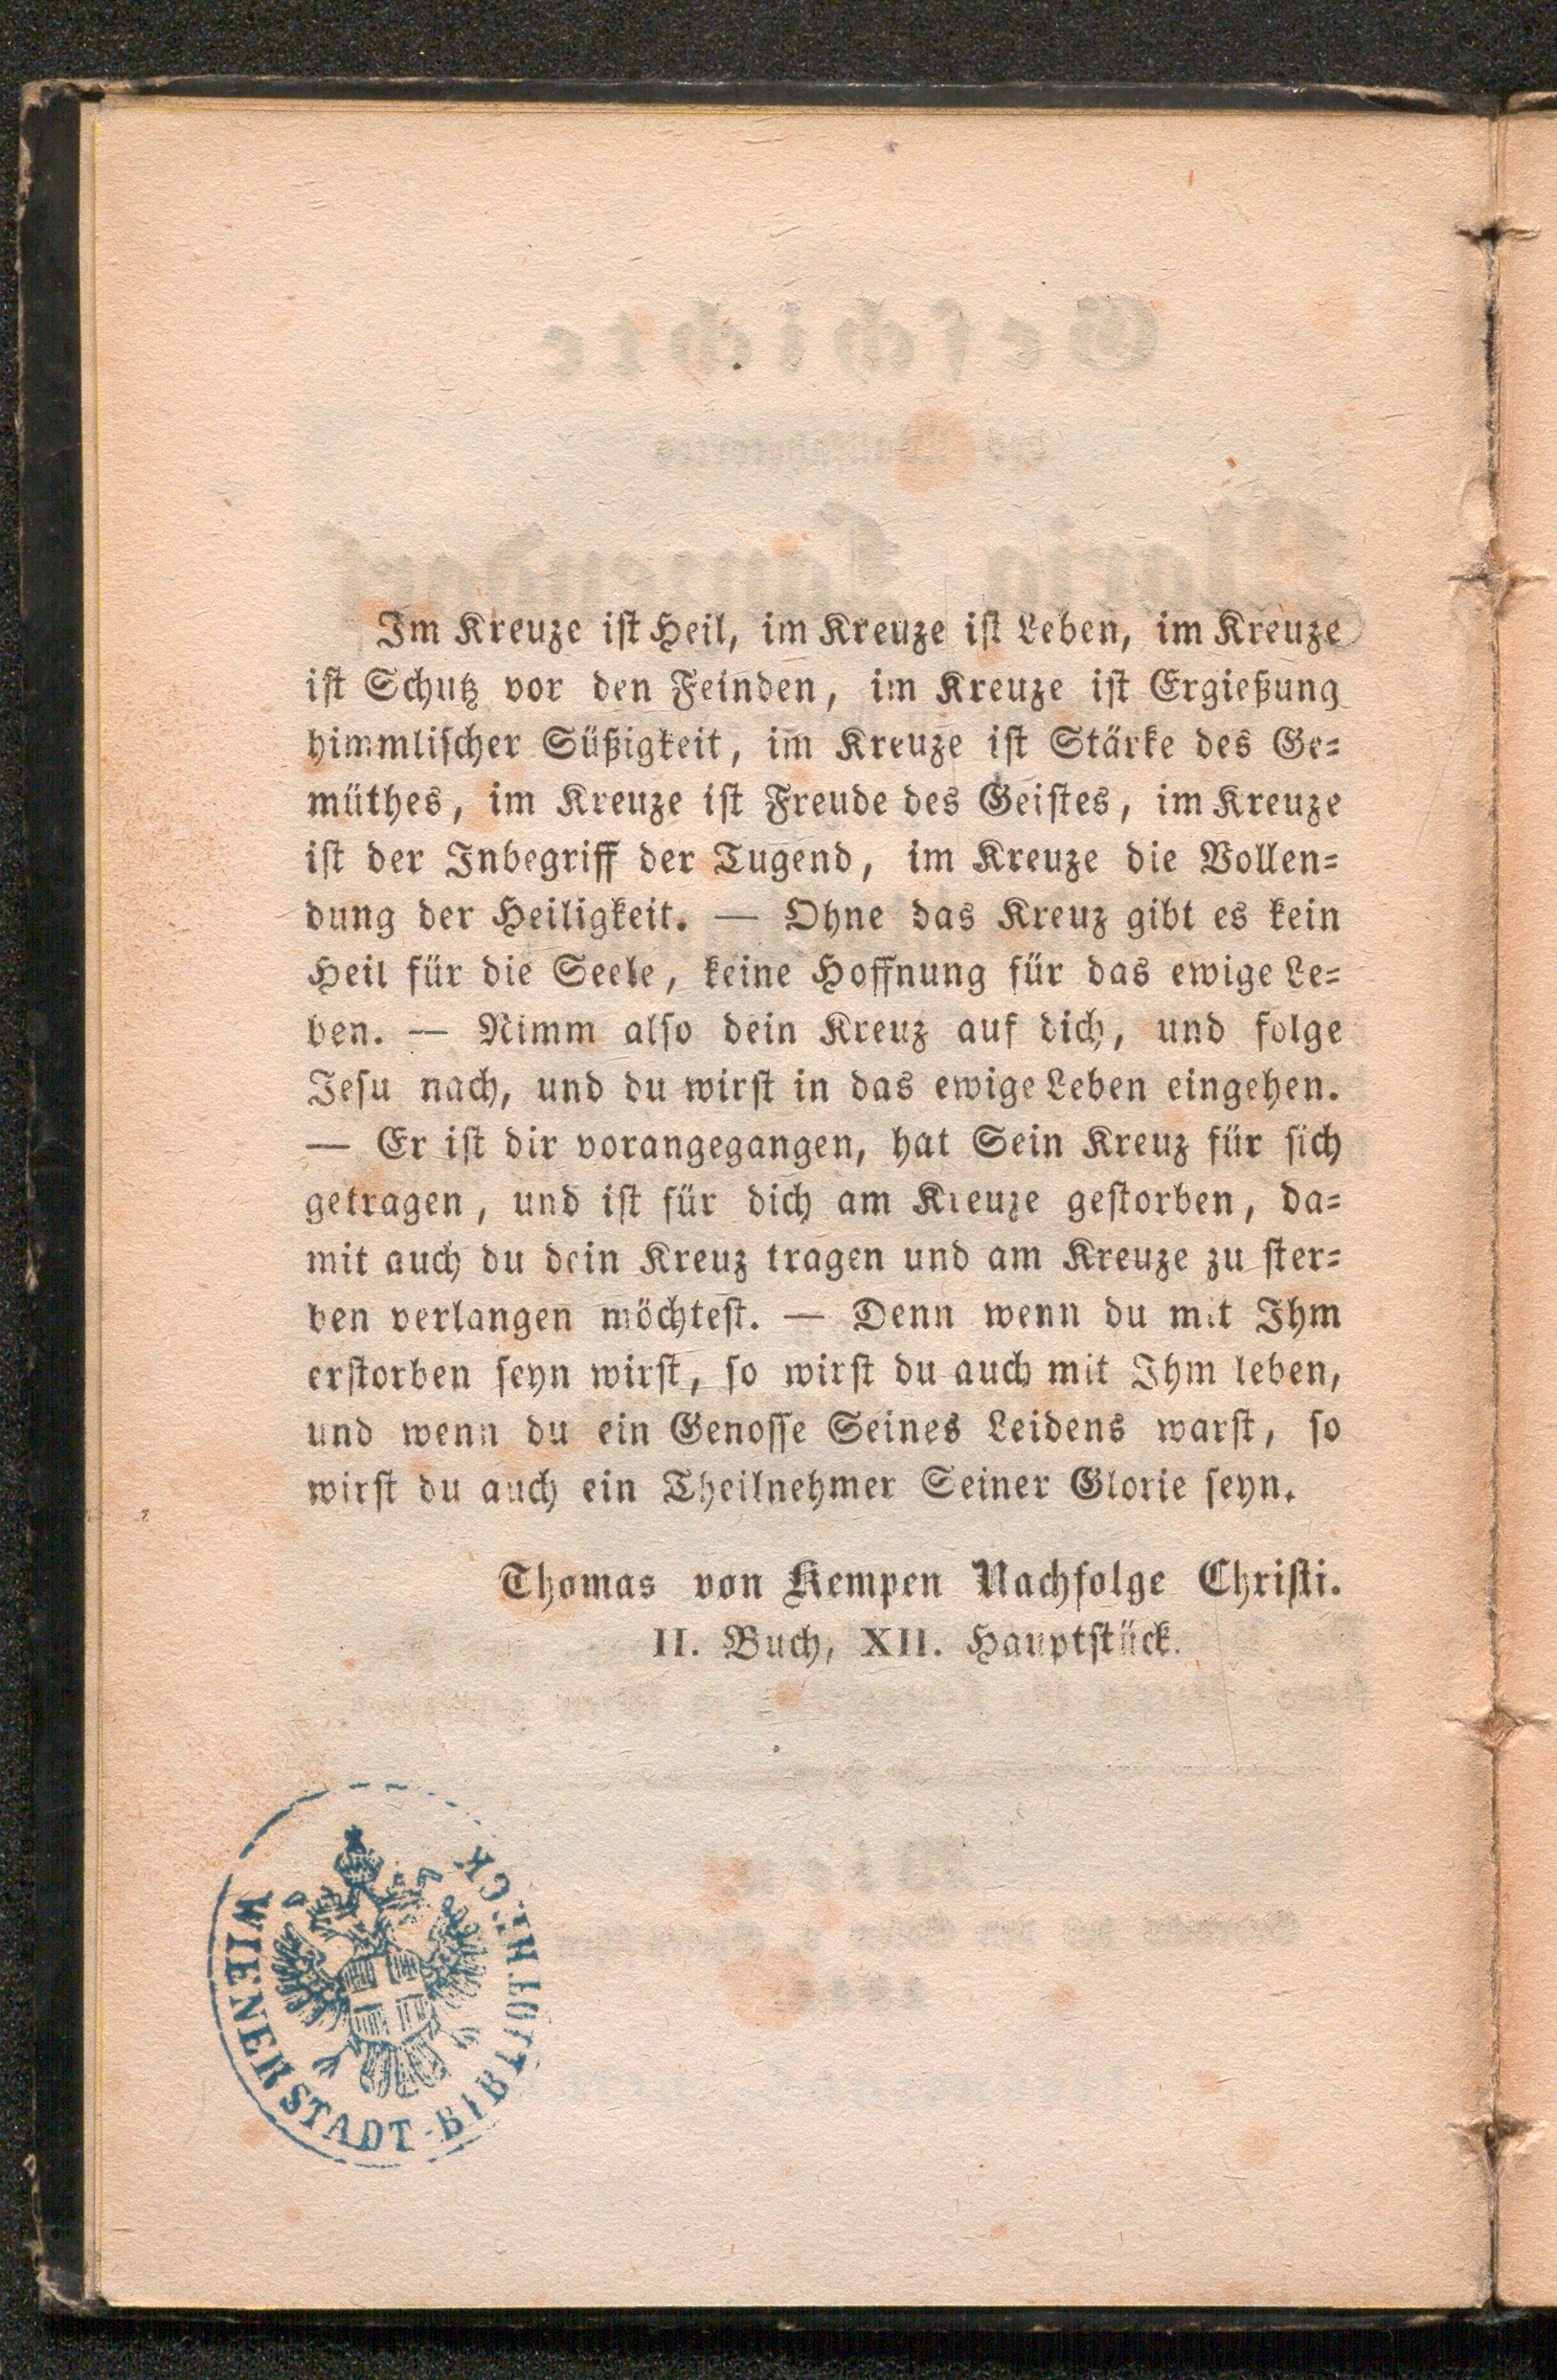 Im Kreuze ist Heil, im Kreuze ist Leben, im Kreuze
ist Schutz vor den Feinden, im Kreuze ist Ergießung
himmlischer Süßigkeit, im Kreuze ist Stärke des Ge-
müthes, im Kreuze ist Freude des Geistes, im Kreuze
ist der Inbegriff der Tugend, im Kreuze die Vollen-
dung der Heiligkeit. — Ohne das Kreuz gibt es kein
Heil für die Seele, keine Hoffnung für das ewige Le-
ben. — Nimm also dein Kreuz auf dich, und folge
Jesu nach, und du wirst in das ewige Leben eingehen.
— Er ist dir vorangegangen, hat Sein Kreuz für sich
getragen, und ist für dich am Kreuze gestorben, da-
mit auch du dein Kreuz tragen und am Kreuze zu ster-
ben verlangen möchtest. — Denn wenn du mit Ihm
erstorben seyn wirst, so wirst du auch mit Ihm leben,
und wenn du ein Genosse Seines Leidens warst, so
wirst du auch ein Theilnehmer Seiner Glorie seyn.
Thomas von Kempen Nachfolge Christi.
II. Buch, XII. Hauptstück.
WIENER STADT-BIBLIOTHECK